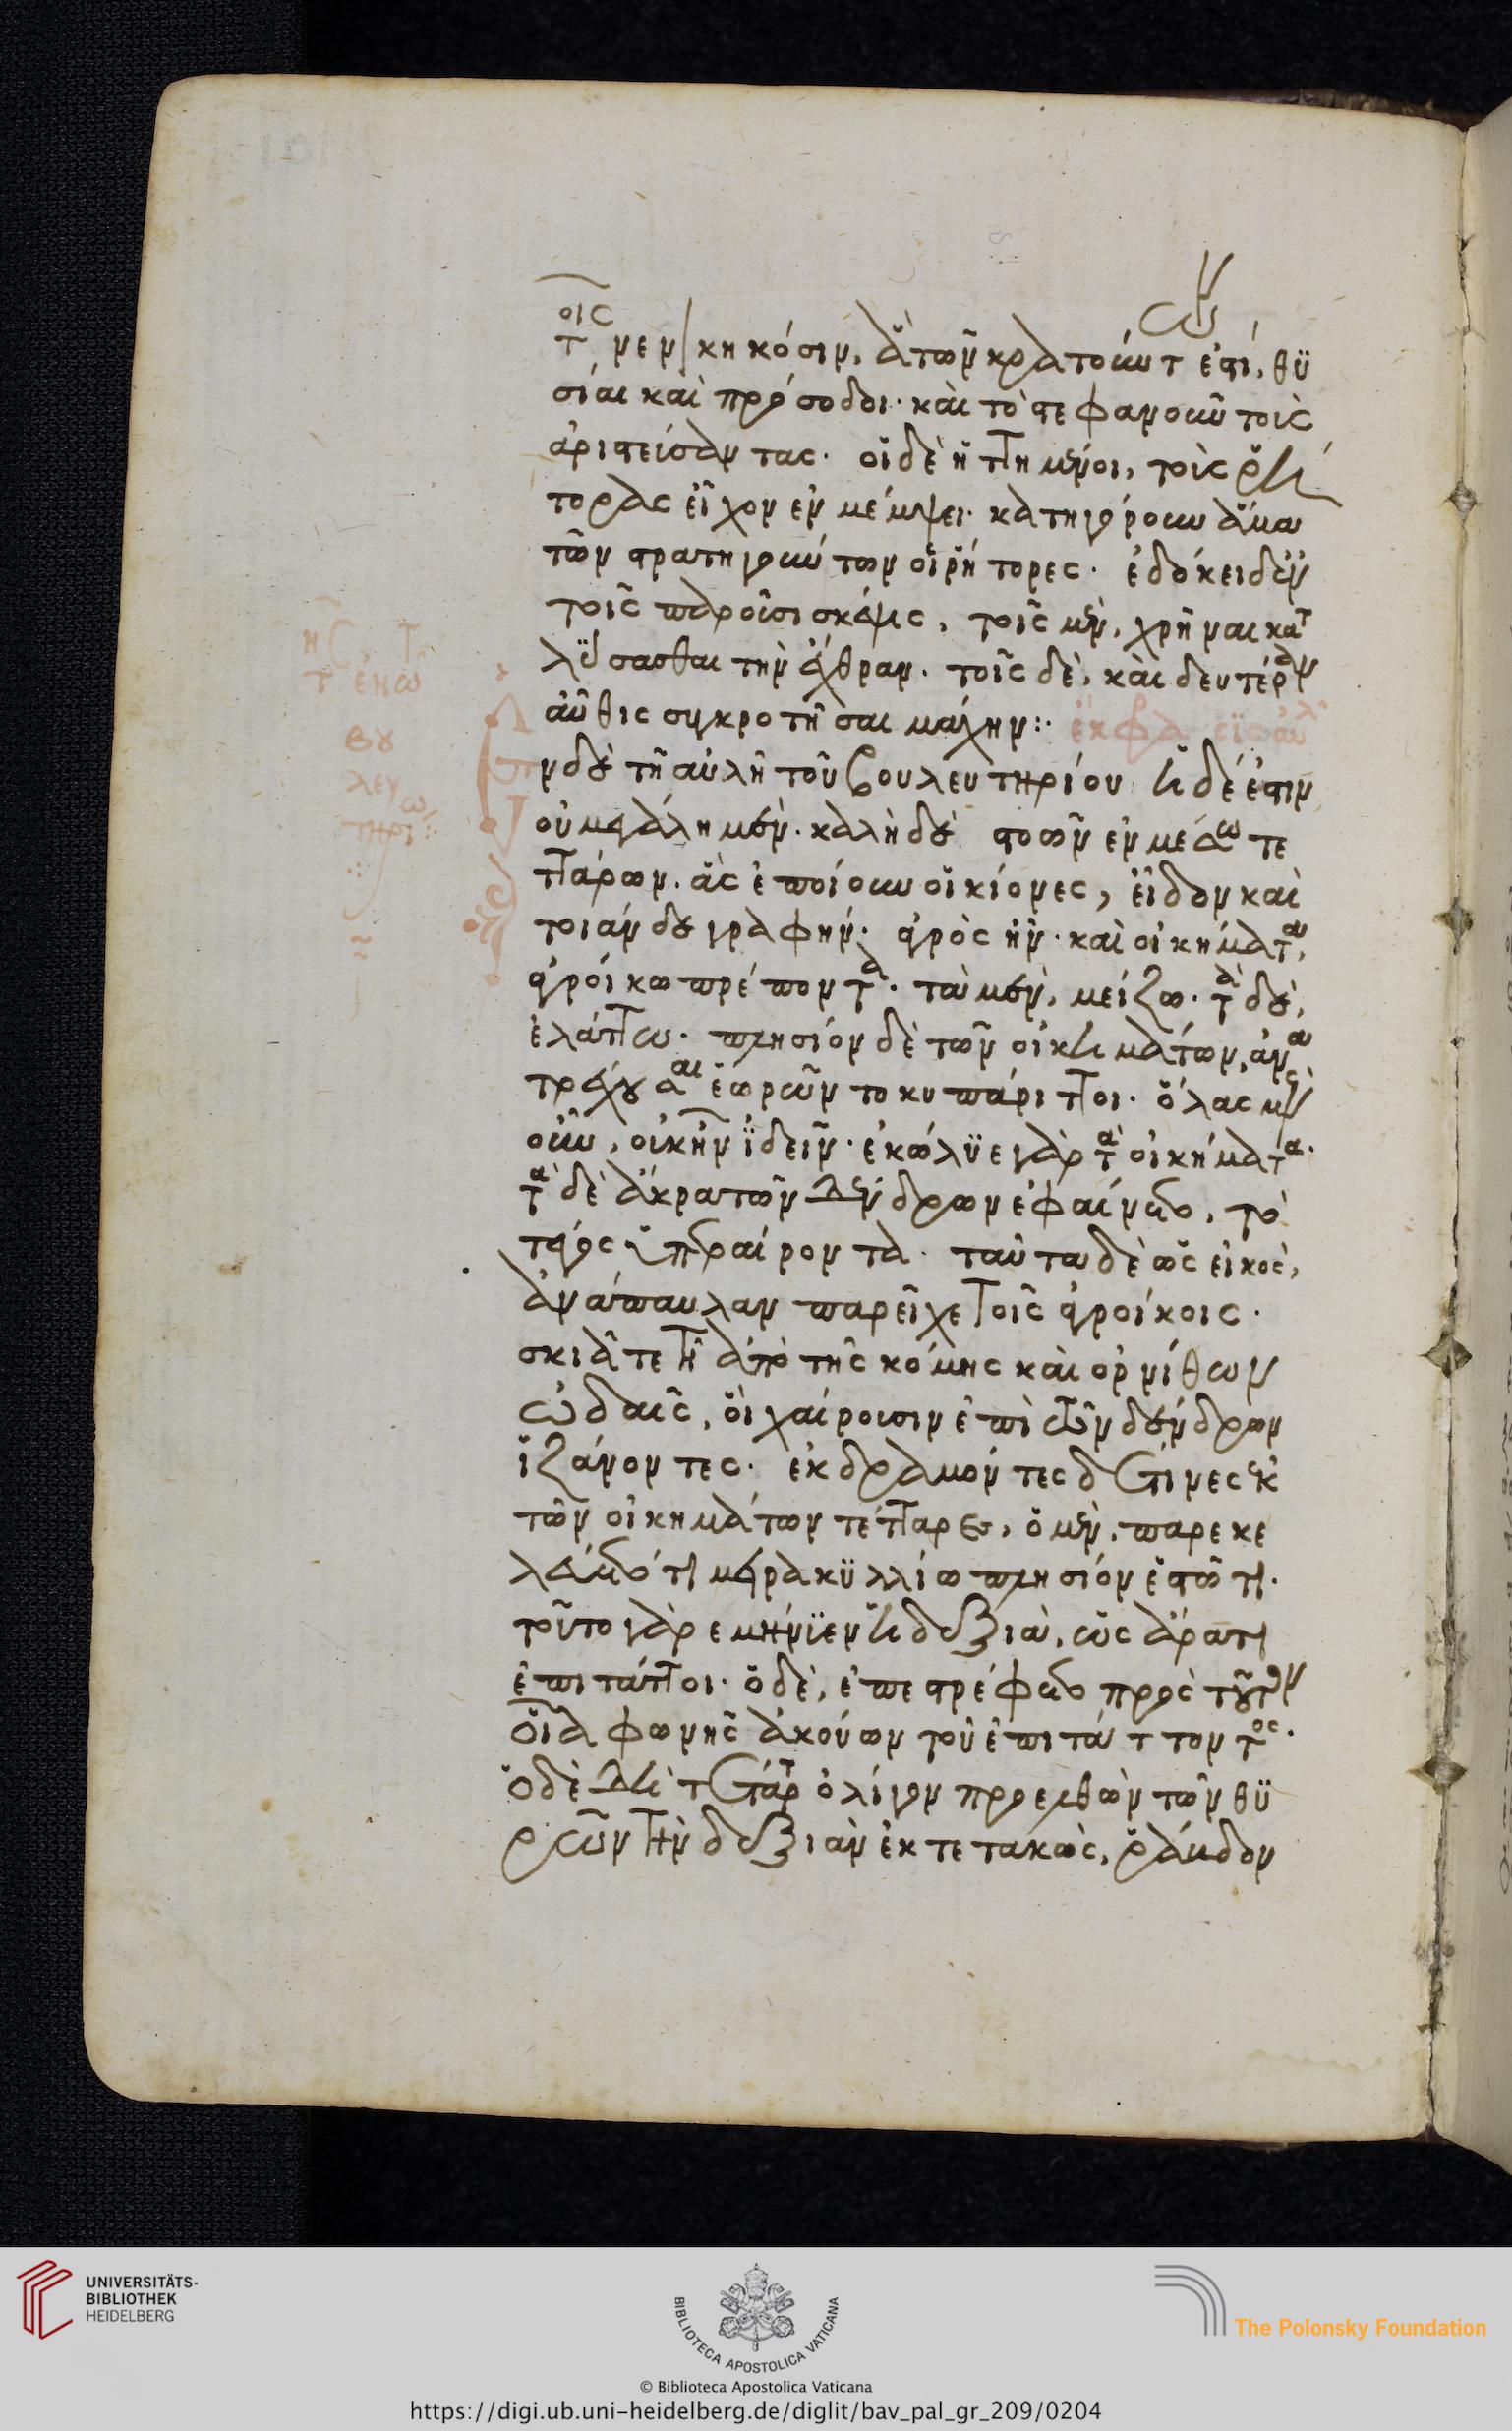 τοῖς νενικηκόσιν, ἃ τῶν κρατούντων ἐστί, θυ
σίαι καὶ πρόσοδοι· καὶ τὸ στεφανοῦν τοὺς
ἀριστεύσαντας. οἱ δὲ ἡττημένοι, τοὺς ῥή
τορας εἶχον ἐν μέμψει· κατηγόρουν ἅμα
τῶν στρατηγούντων οἱ ῥήτορες. ἐδόκει δ' ἐν
τοῖς παροῦσι σκέψις, τοῖς μὲν, χρῆναι κατα
λύσασθαι τὴν ἔχθραν. τοῖς δὲ, καὶ δευτέραν
αὖθις συγκροτῆσαι μάχην:
ἐν δὲ τῇ αὐλῇ τοῦ βουλευτηρίου ἡ δέ ἐστιν
οὐ μεγάλη μέν· καλὴ δὲ στοῶν ἐν μέσῳ τε
ττάρων· ἃς ἐποίουν οἱ κίονες, εἶδον καὶ
τοιάνδε γραφήν· ἀγρὸς ἦν· καὶ οἰκήματα,
ἀγροίκῳ πρέποντα· τὰ μὲν, μείζω· τὰ δὲ,
ἐλάττω. πλησίον δὲ τῶν οἰκημάτων, ἀνα
τρέχουσαι ἑωρῶντο κυπάριττοι. ὅλας μὲν
οὖν, οὐκ ἦν ἰδεῖν· ἐκώλυε γὰρ τὰ οἰκήματα·
τὰ δὲ ἄκρα τῶν δένδρων ἐφαίνετο, τὸ
τέγος ὑπεραίροντα. ταῦτα δὲ ὡς εἰκὸς,
ἀνάπαυλαν παρεῖχε τοῖς ἀγροίκοις.
σκιᾷ τε τῇ ἀπὸ τῆς κόμης καὶ ὀρνίθων
ᾠδαῖς, οἳ χαίρουσιν ἐπὶ τῶν δένδρων
ἱζάνοντες. ἐκδραμόντες δέ τινες ἐκ
τῶν οἰκημάτων τέτταρες, ὁ μὲν, παρεκε
λεύετό τι μειρακυλλίῳ πλησίον ἑστῶτι.
τοῦτο γὰρ ἐμήνυεν ἡ δεξιὰ, ὡς ἄρα τι
ἐπιτάττοι. ὁ δὲ, ἐπεστρέφετο πρὸς τοῦτον
οἷα φωνῆς ἀκούων τοῦ ἐπιτάττοντος.
ὁ δὲ δὴ τέταρτος ὀλίγον προελθὼν τῶν θυ
ρῶν τὴν δεξιὰν ἐκτετακὼς, ῥάβδον
UNIVERSITÄTS-
BIBLIOTHEK
HEIDELBERG
BIBLIOTECA APOSTOLICA VATICANA
© Biblioteca Apostolica Vaticana
The Polonsky Foundation
https://digi.ub.uni-heidelberg.de/diglit/bav_pal_gr_209/0204